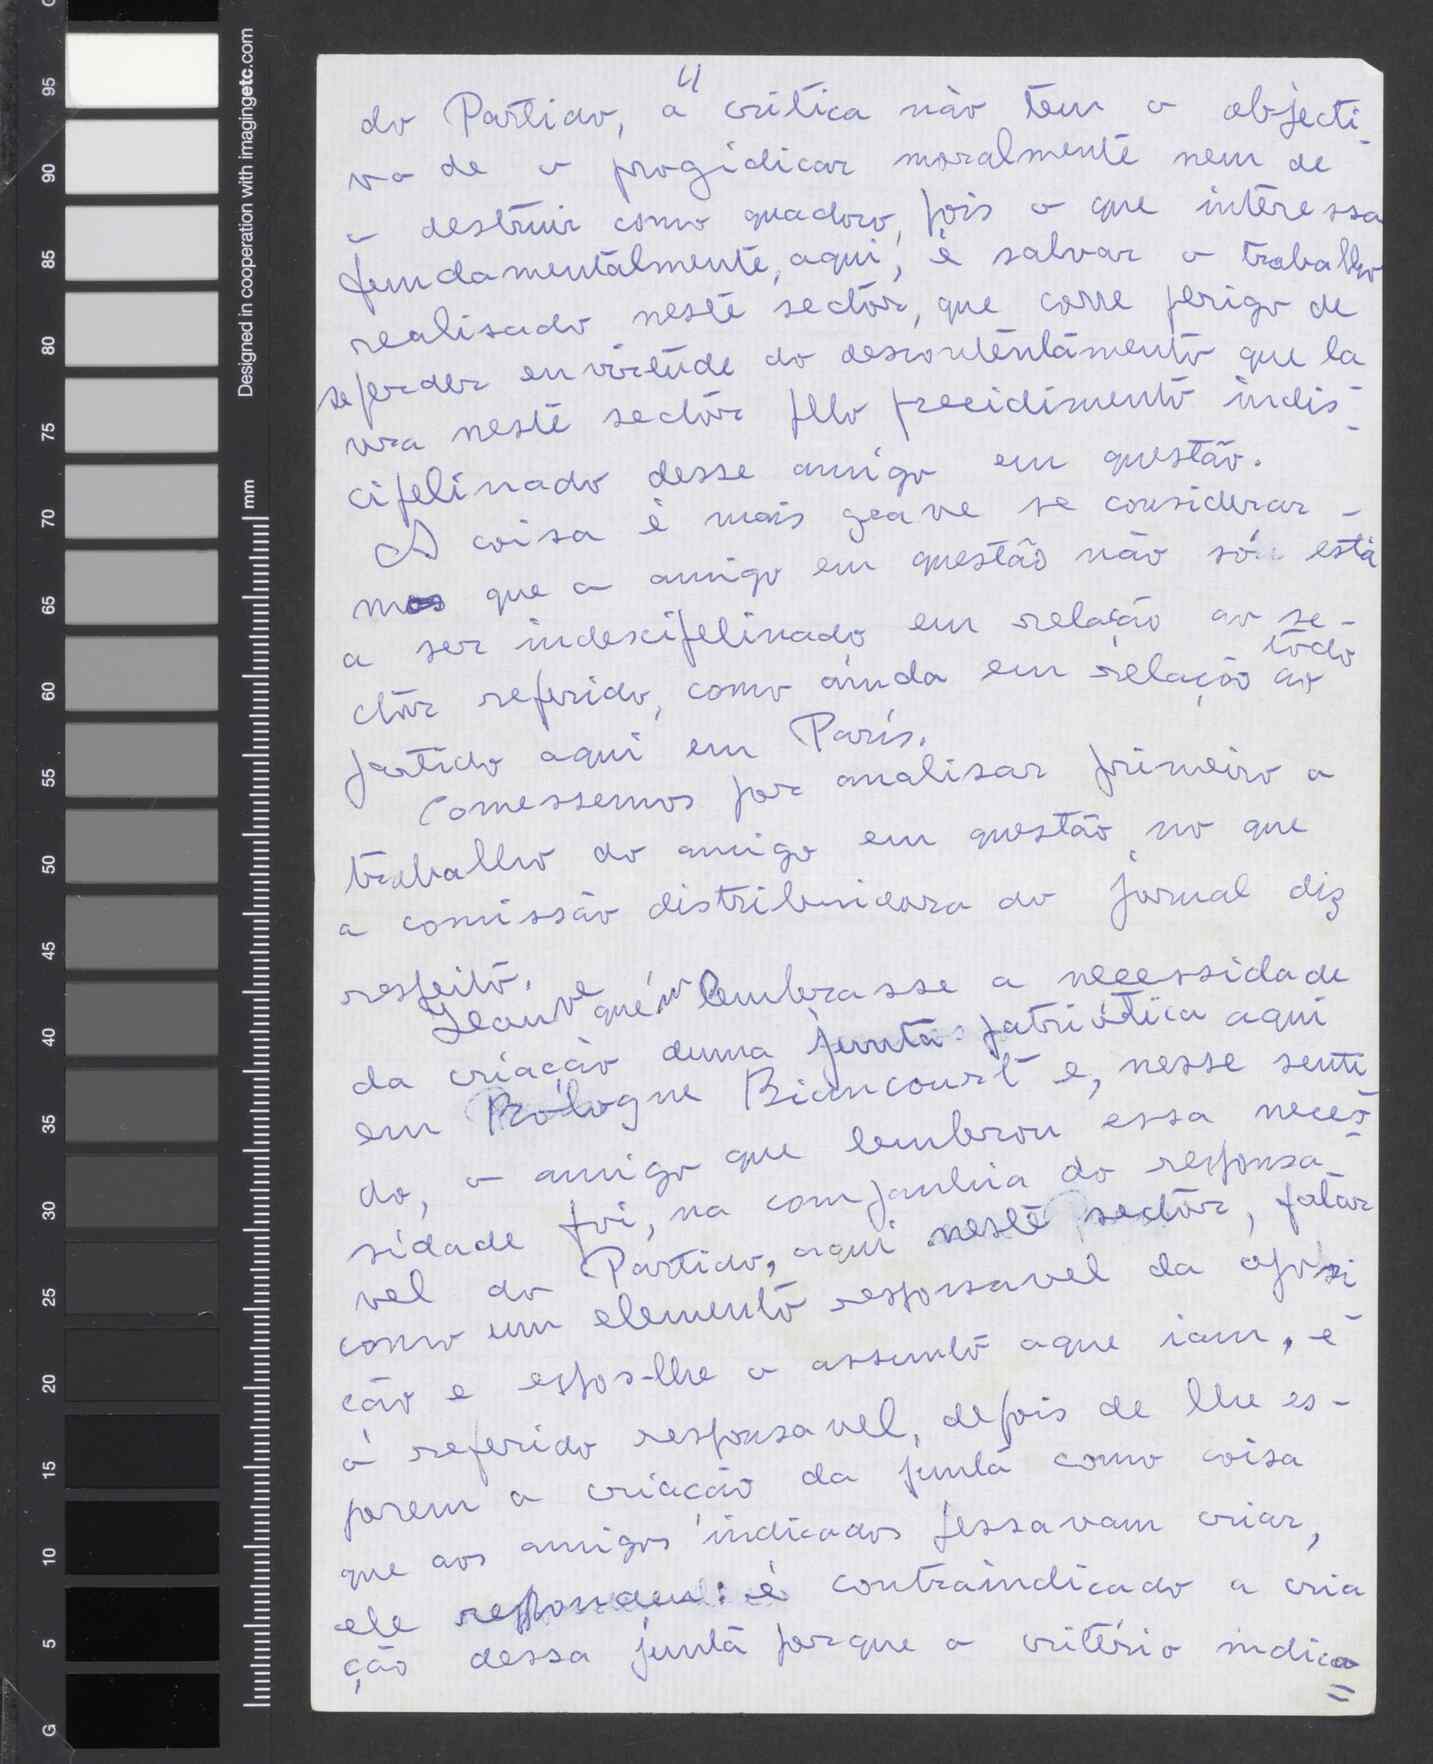 4
do Partido, a critica não tem o objecti-
vo de o progidicar moralmente nem de
o destruir como quadoro, pois o que interessa
fundamentalmente, aqui, é salvar o trabalho
realisado neste sector, que corre perigo de
se perder en virtude do descontentamento que la
vra neste sector pelo precidimento indis-
cipelinado desse amigo em questão.
A coisa é mais grave se considerar-
mos que o amigo em questão não só está
a ser indescipelinado em relação ao se-
ctor referido, como ainda em relação ao todo
partido aqui em Paris.
Comessemos por analisar primeiro o
trabalho do amigo em questão no que
a comissão distribuidora do jornal diz
respeito.
Houve quém lembrasse a necessidade
da criação duma junta patriótica aqui
em Bologne Biancourt e, nesse senti
do, o amigo que lembrou essa neces-
sidade foi, na companhia do responsa-
vel do Partido, aqui neste sector, falar
como um elemento responsavel da oposi
ção e espos-lhe o assunto aque iam, e
o referido responsavel, depois de lhe es-
porem a criacão da junta como coisa
que aos amigos indicados pessavam criar,
ele respondeu: é contraindicado a cria
ção dessa junta porque o critério indica=